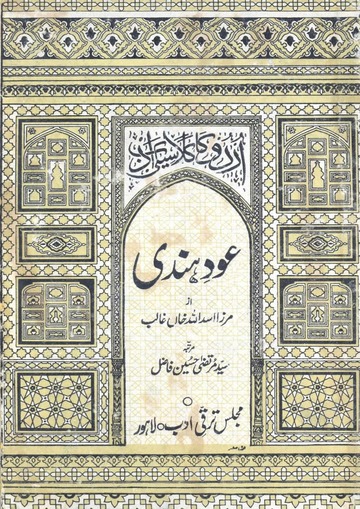 اردو کا کلاسیکی ادب
عودِ ہندی
از
مرزا اسد اللہ خاں غالب
مرتبہ
سید مرتضیٰ حسین فاضل
مجلس ترقی ادب، لاہور